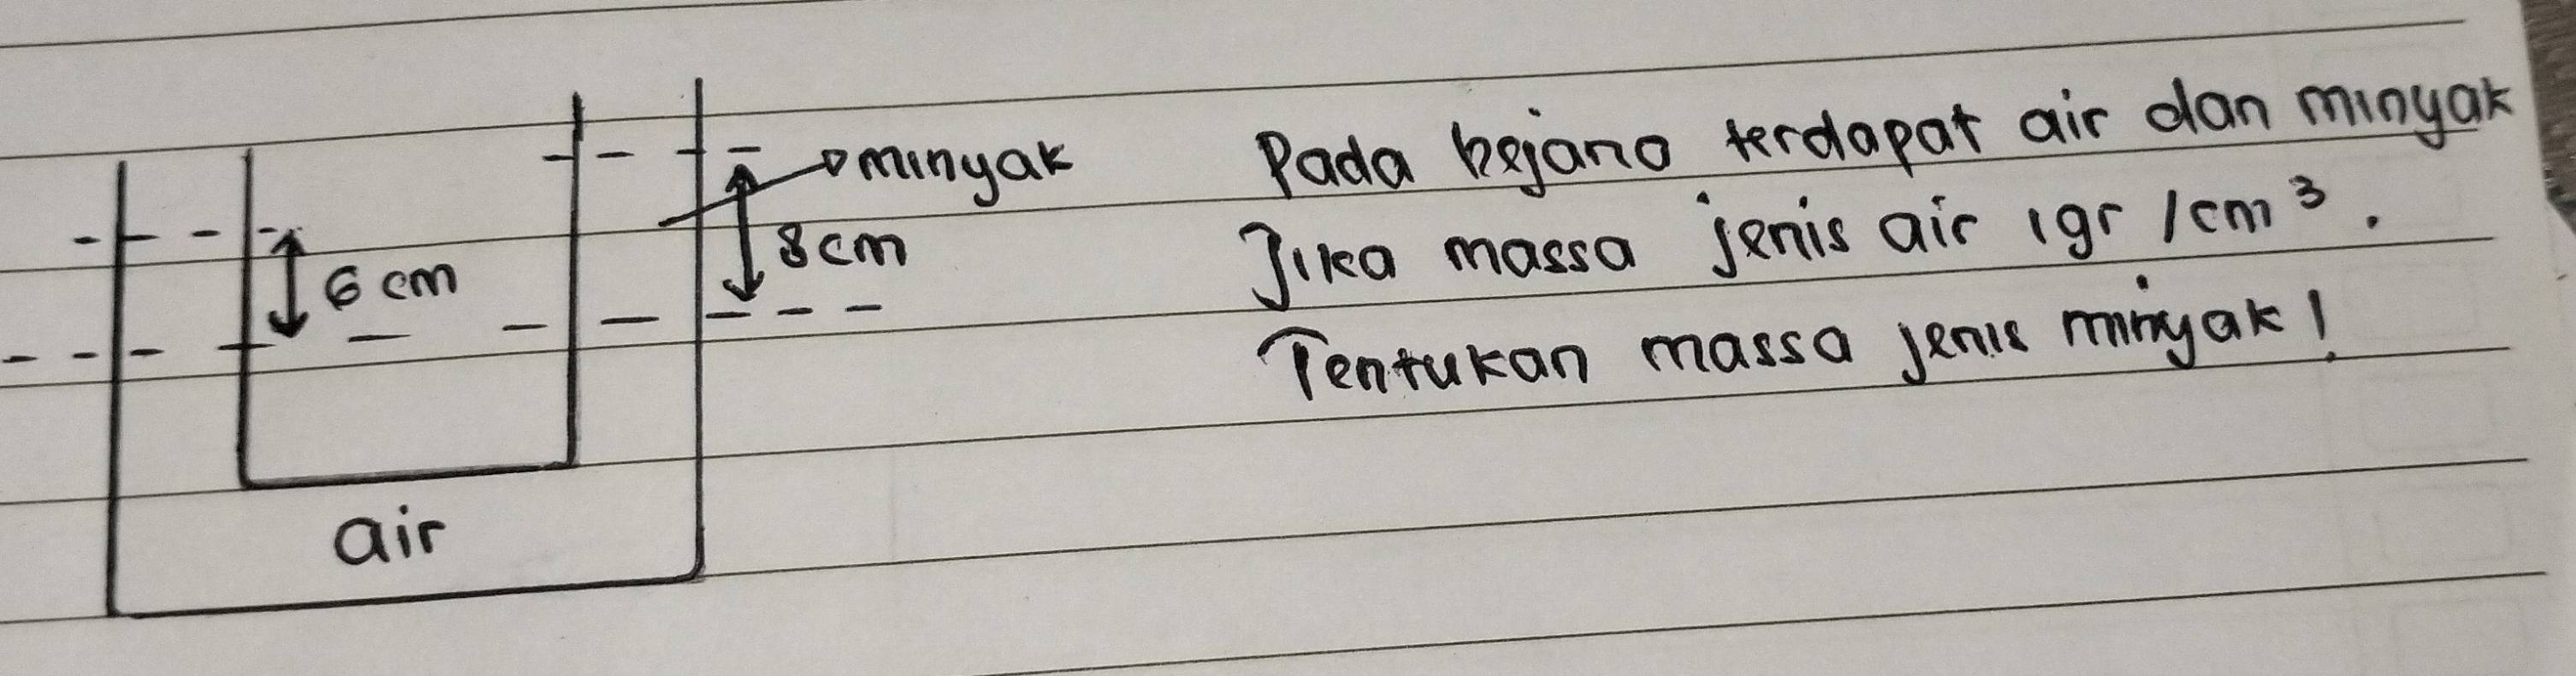 minyak
8cm
6 cm
air
Pada bejana terdapat air dan minyak
Jika massa jenis air 1gr /cm³.
Tentukan massa jenis minyak!